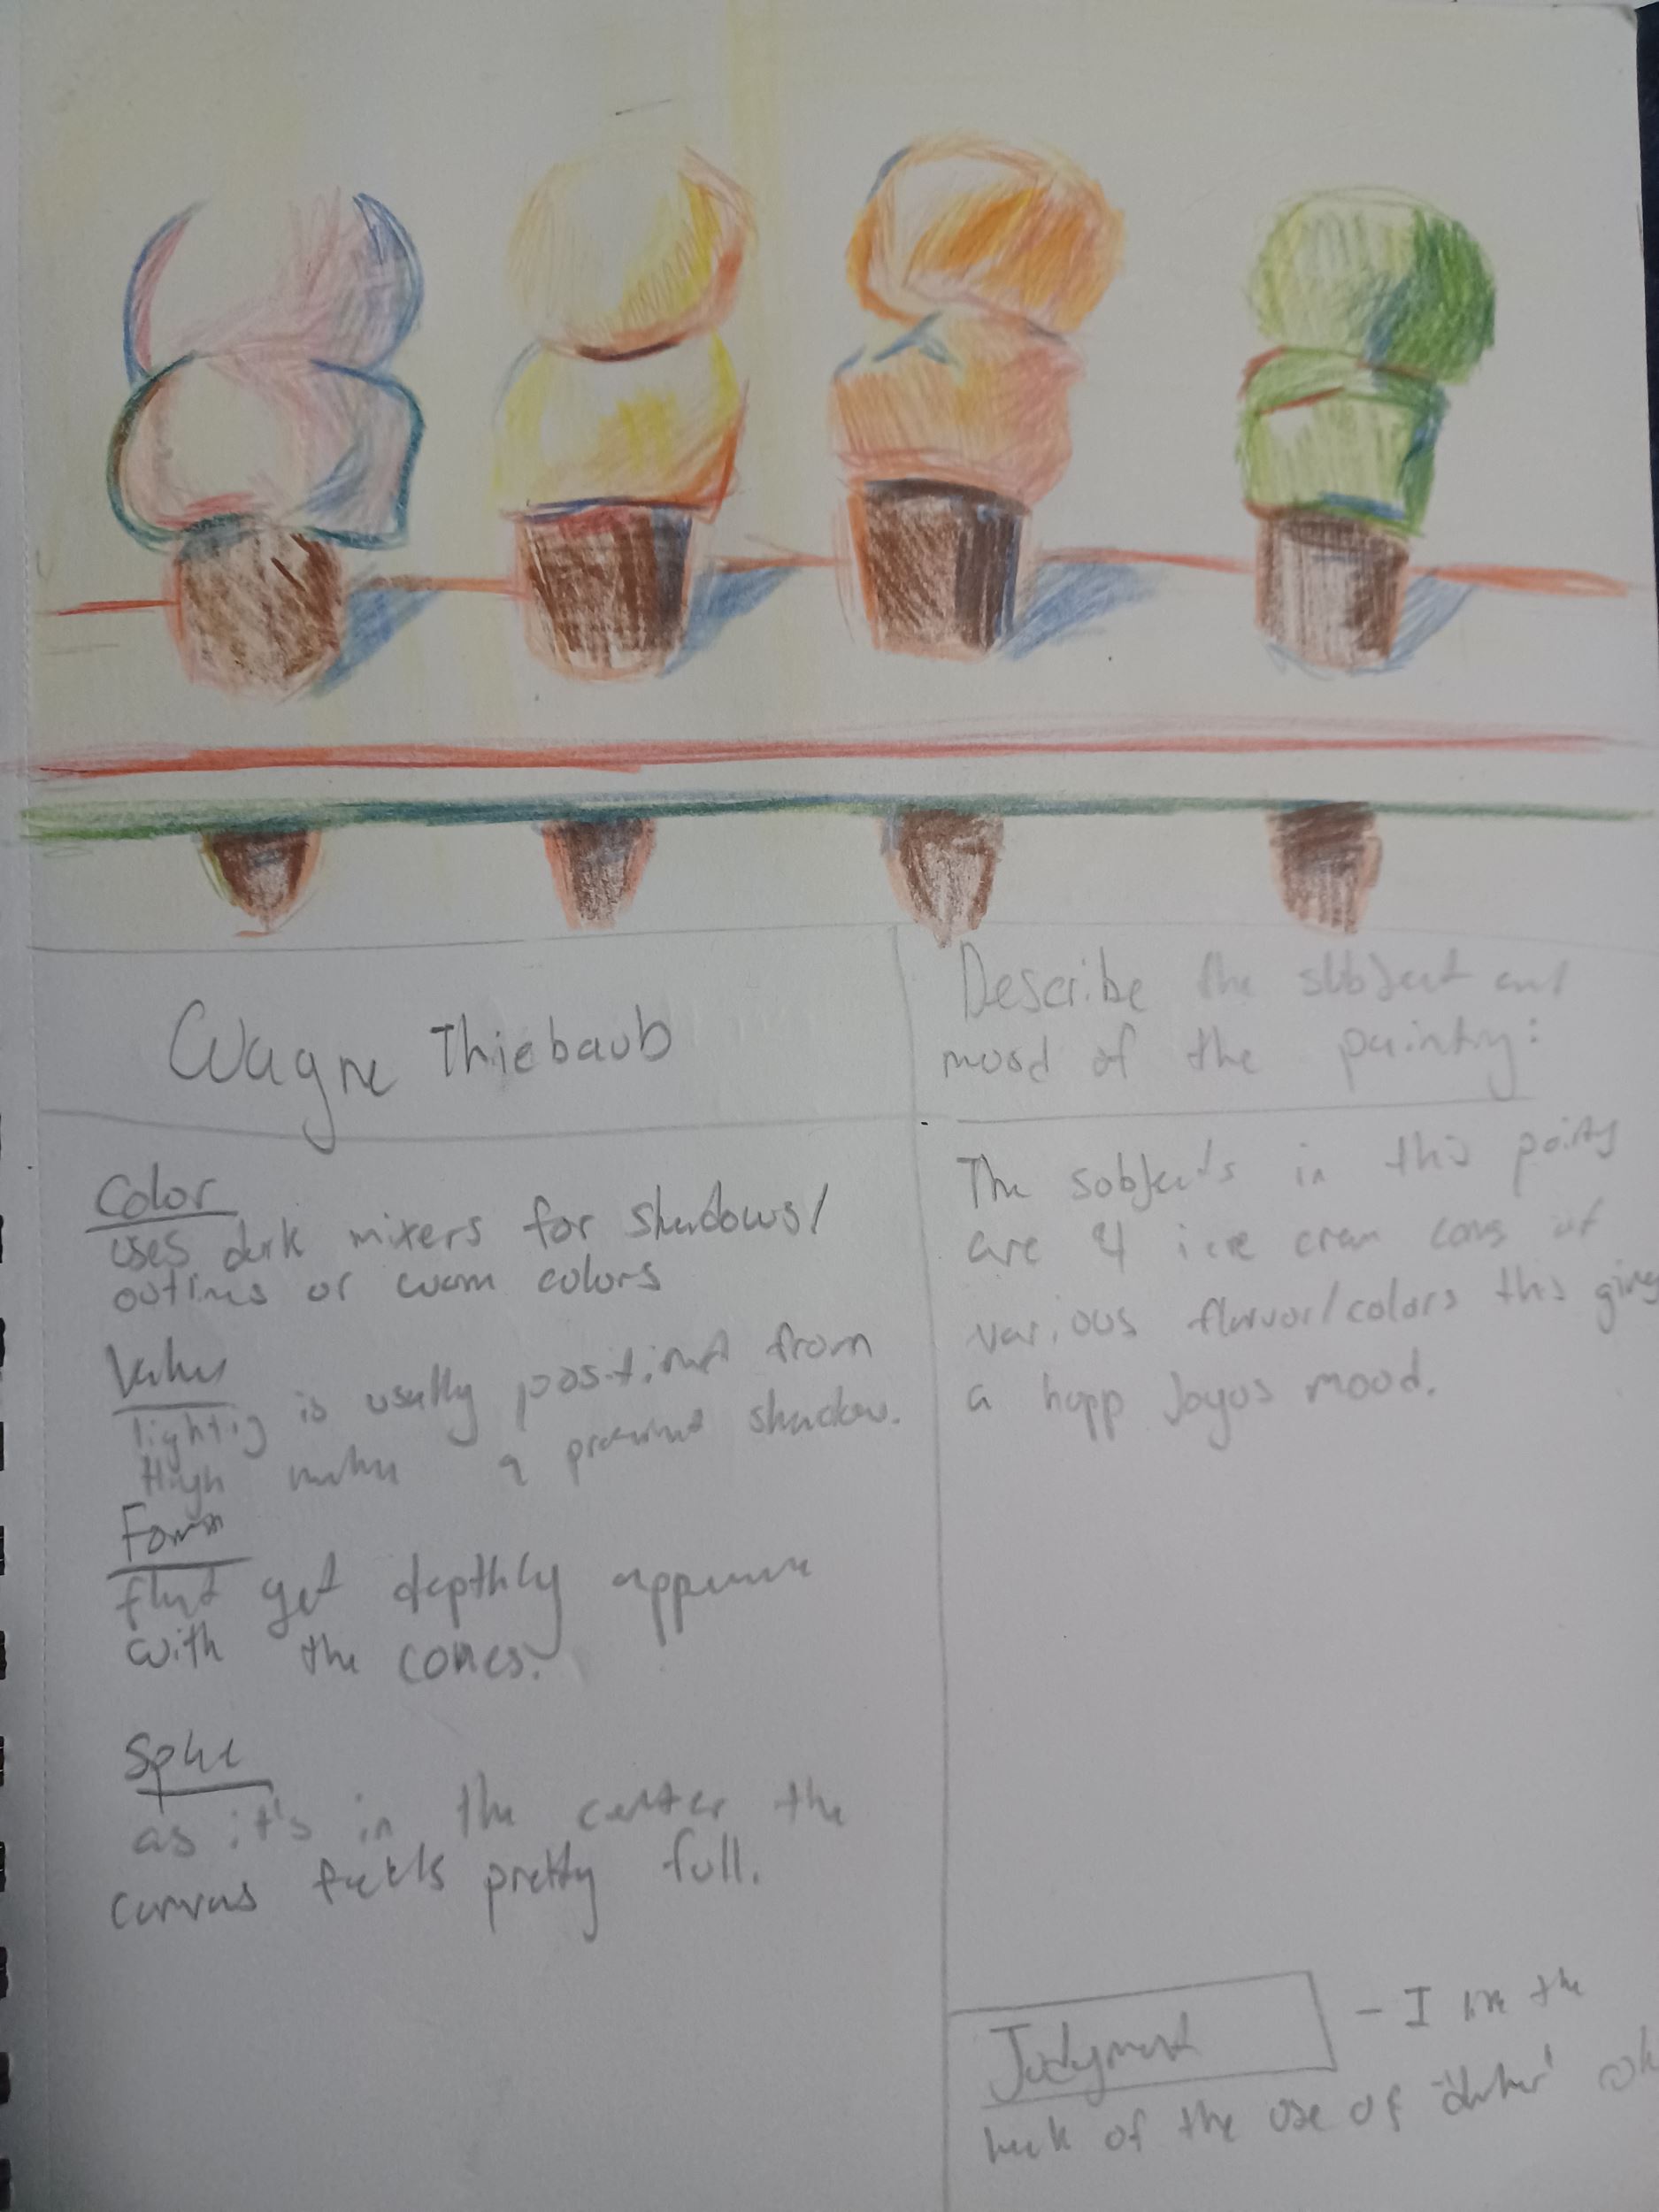 Wayne Thiebaub
Color
uses dark mixers for shadows/
outlines or warm colors
Value
lighting is usually positioned from
High makes a shadow.
Form
flat yet depthly
with the cones.
Space
as it's in the center the
canvas feels pretty full.
Describe the subject and
mood of the painting:
The sobjects in this
are 4 cream cons of
various flavor/colors this gives
a happ Joyos mood.
Judgment
- I the
of the use of